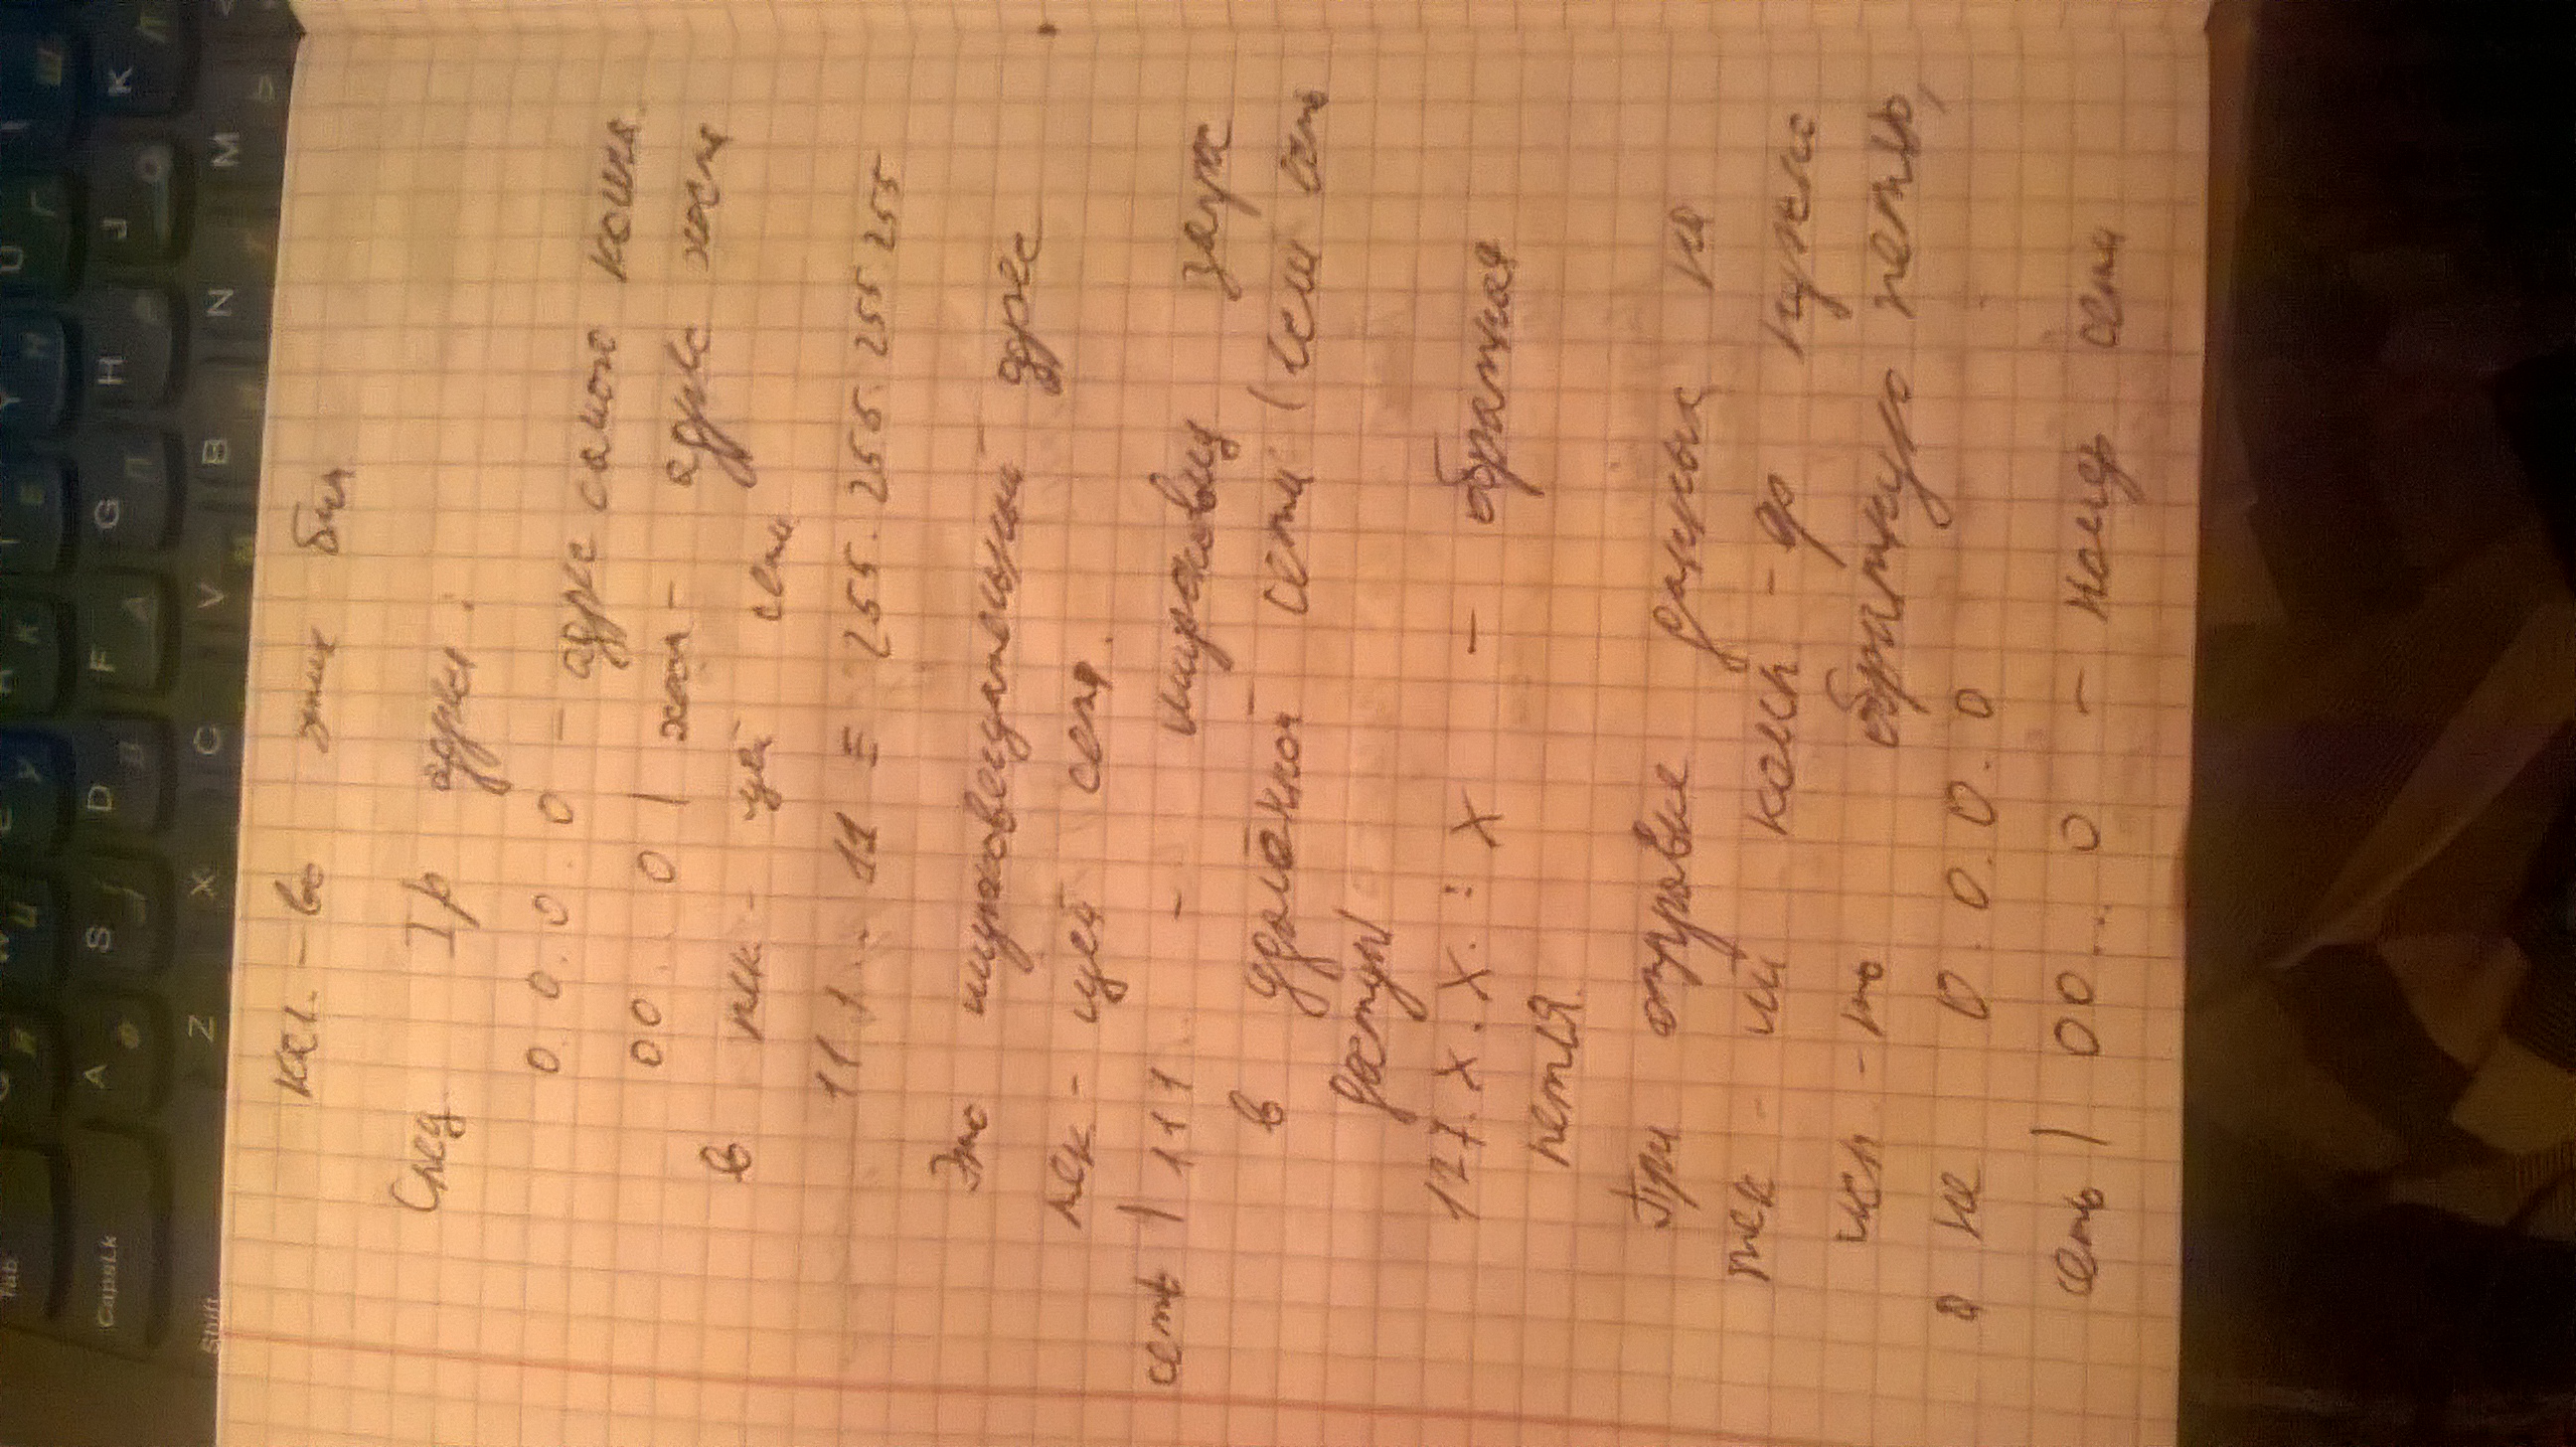 Tab Q Й W Ц E У R К T Е Y Н U Г I Ш
CapsLk A Ф S D В F А G П H J О K Л
Shift Z X C V М B N Т M Ь
кол. - во этих бит
След Ip адреса :
0. 0. 0. 0 - адрес самого компа.
00... 0 | хост - адрес хоста
в тек. - щей сети
111... 11 ≡ 255. 255. 255. 255
Это широковещательный адрес
тек. - щей сети.
сеть | 111... - широковещ запрос
в удалённой сети (если есть
доступ)
127. X. X. : X - обратная
петля.
При отправке данных на
тек - ий комп. - ер нужно
исп - ть обратную петлю,
а не 0. 0. 0. 0
сеть | 00... 0 - номер сети